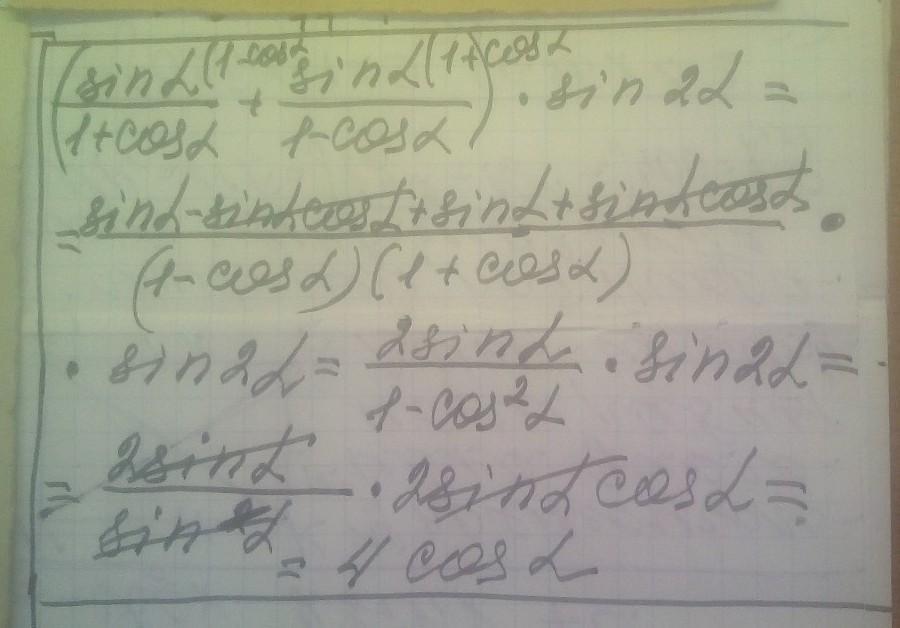 (sinα(1-cosα)/(1+cosα) + sinα(1+cosα)/(1-cosα)) · sin2α =
= (sinα-sinαcosα+sinα+sinαcosα)/((1-cosα)(1+cosα)) ·
· sin2α = 2sinα/(1-cos²α) · sin2α =
= 2sinα/sin²α · 2sinαcosα =
= 4cosα